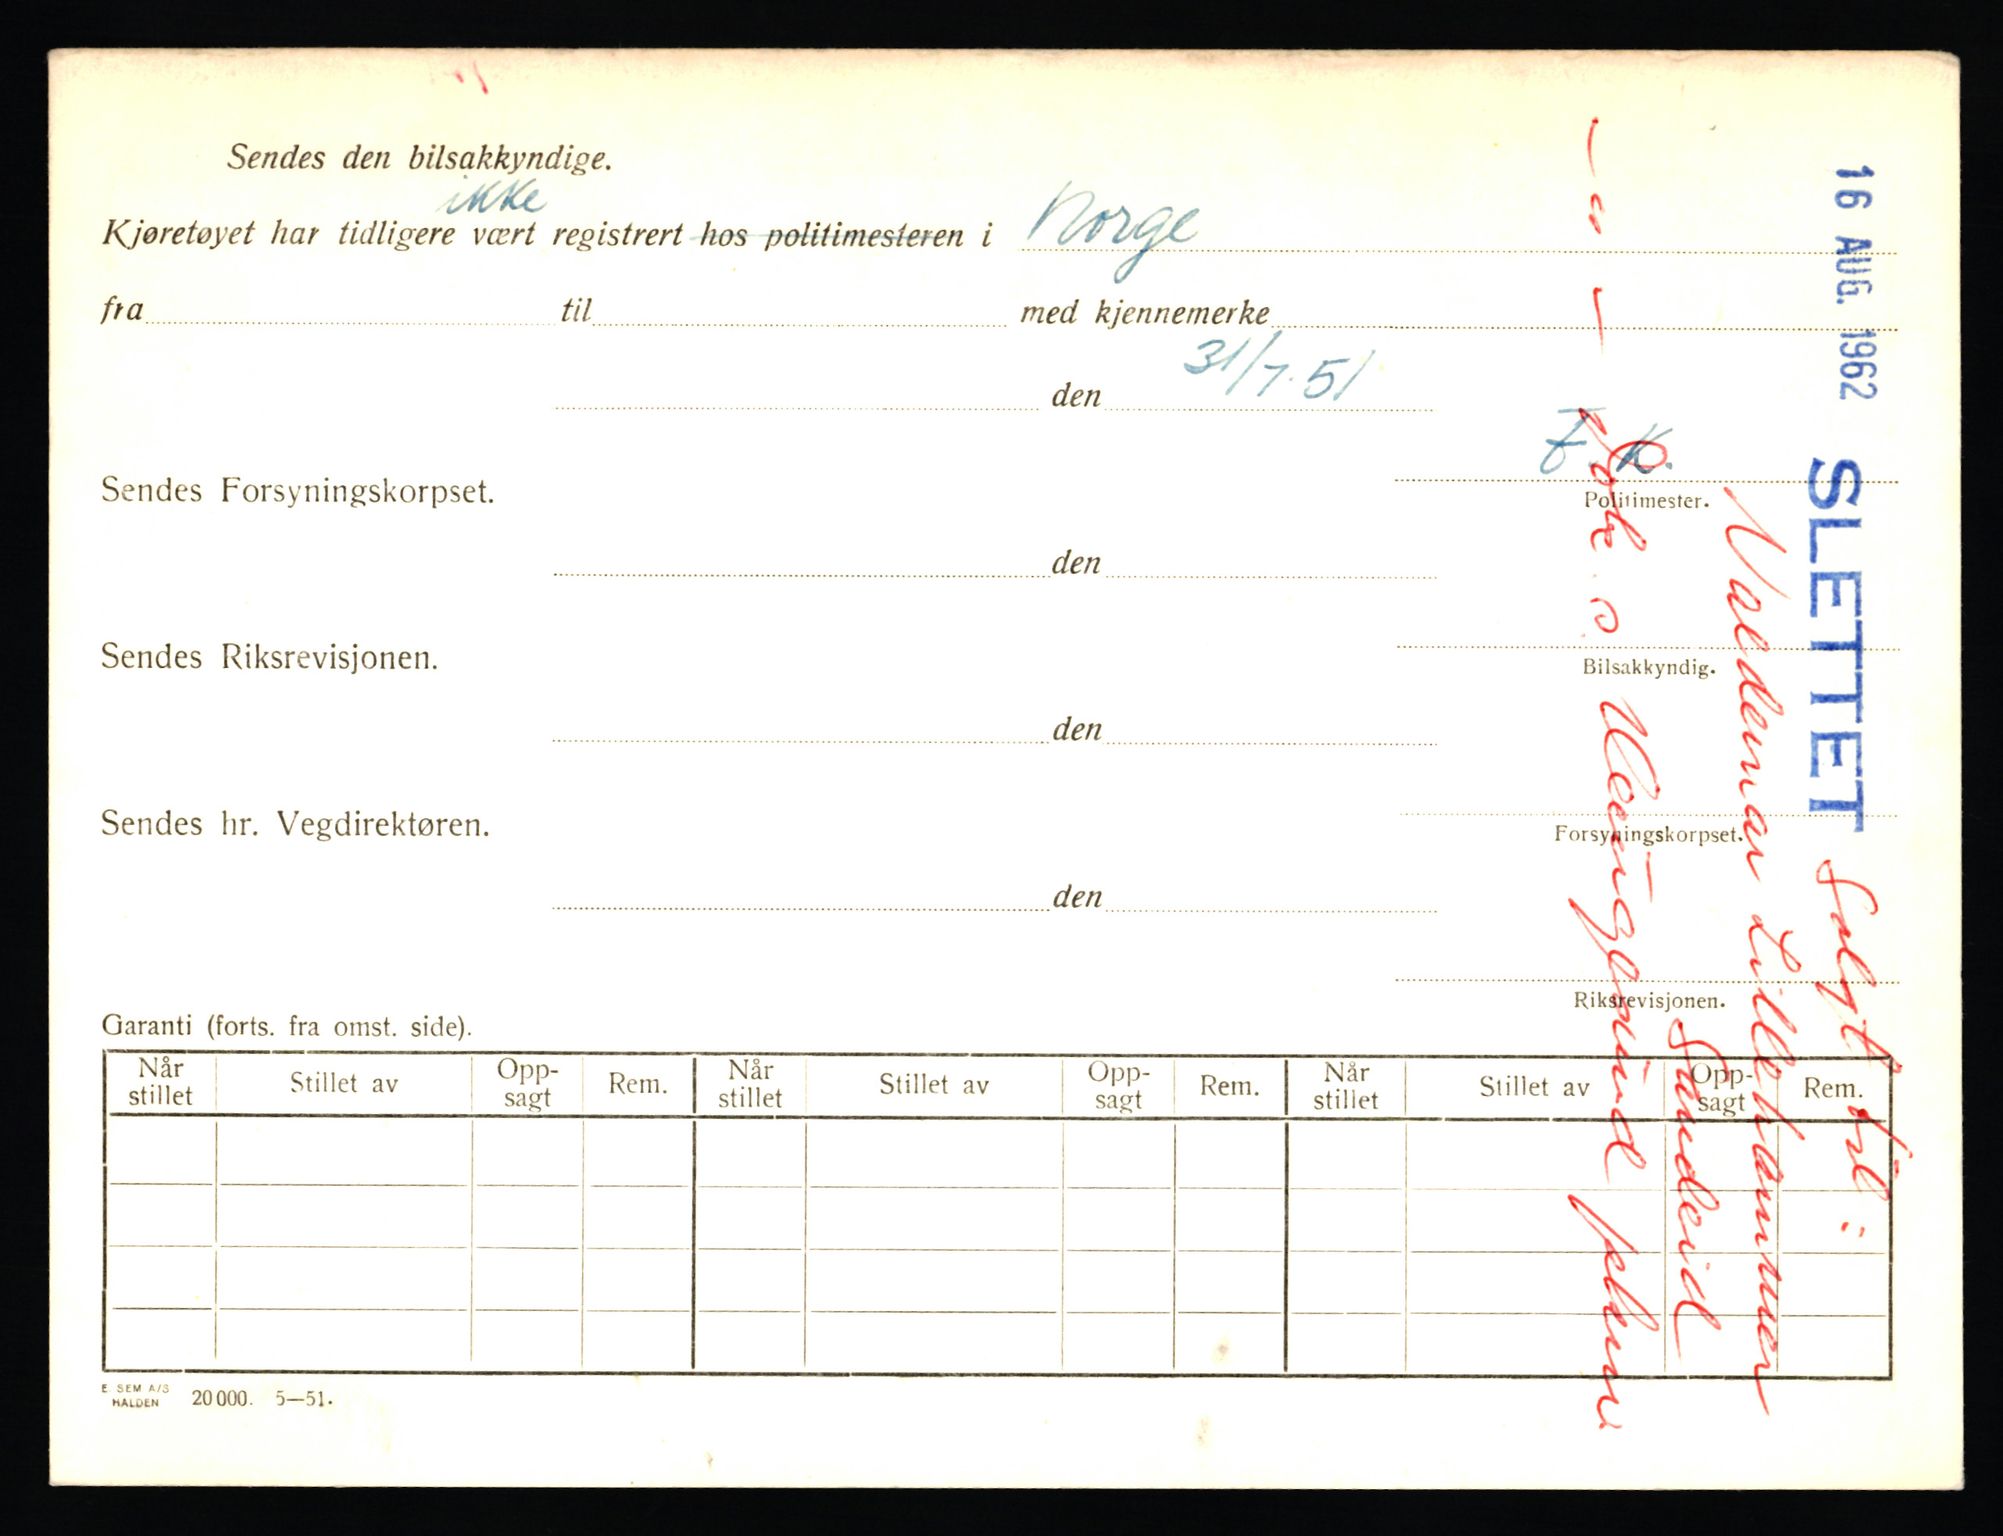 Sendes den bilsakkyndige.
ikke
Kjøretøyet har tidligere vært registrert hos politimesteren i Norge
fra til med kjennemerke
den 31/7.51
Sendes Forsyningskorpset.
F. K.
Politimester.
den
Sendes Riksrevisjonen.
Bilsakkyndig.
den
Sendes hr. Vegdirektøren.
Forsyningskorpset.
den
Riksrevisjonen.
Garanti (forts. fra omst. side).
Når stillet Stillet av Opp-sagt Rem. Når stillet Stillet av Opp-sagt Rem. Når stillet Stillet av Opp-sagt Rem.
E. SEM A/S
HALDEN 20000. 5—51.
16 AUG. 1962 SLETTET Solgt til:
Valdemar Lillehammer
Sandeid